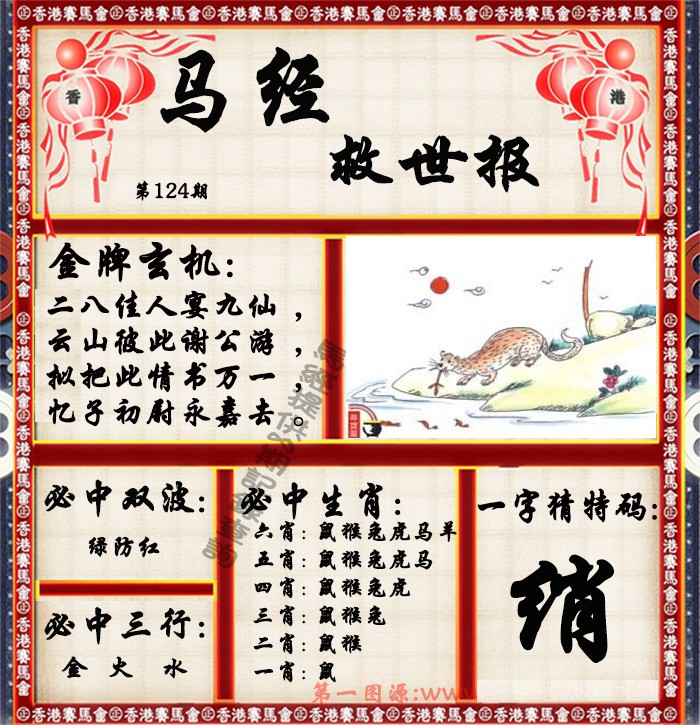 香港賽馬會
香 港
马经
救世报
第124期
金牌玄机：
二八佳人宴九仙，
云山彼此谢公游，
拟把此情书万一，
忆子初尉永嘉去。
必中双波：
绿防红
必中三行：
金 火 水
必中生肖：
六肖：鼠猴兔虎马羊
五肖：鼠猴兔虎马
四肖：鼠猴兔虎
三肖：鼠猴兔
二肖：鼠猴
一肖：鼠
一字猜特码：
绡
第一图源:www